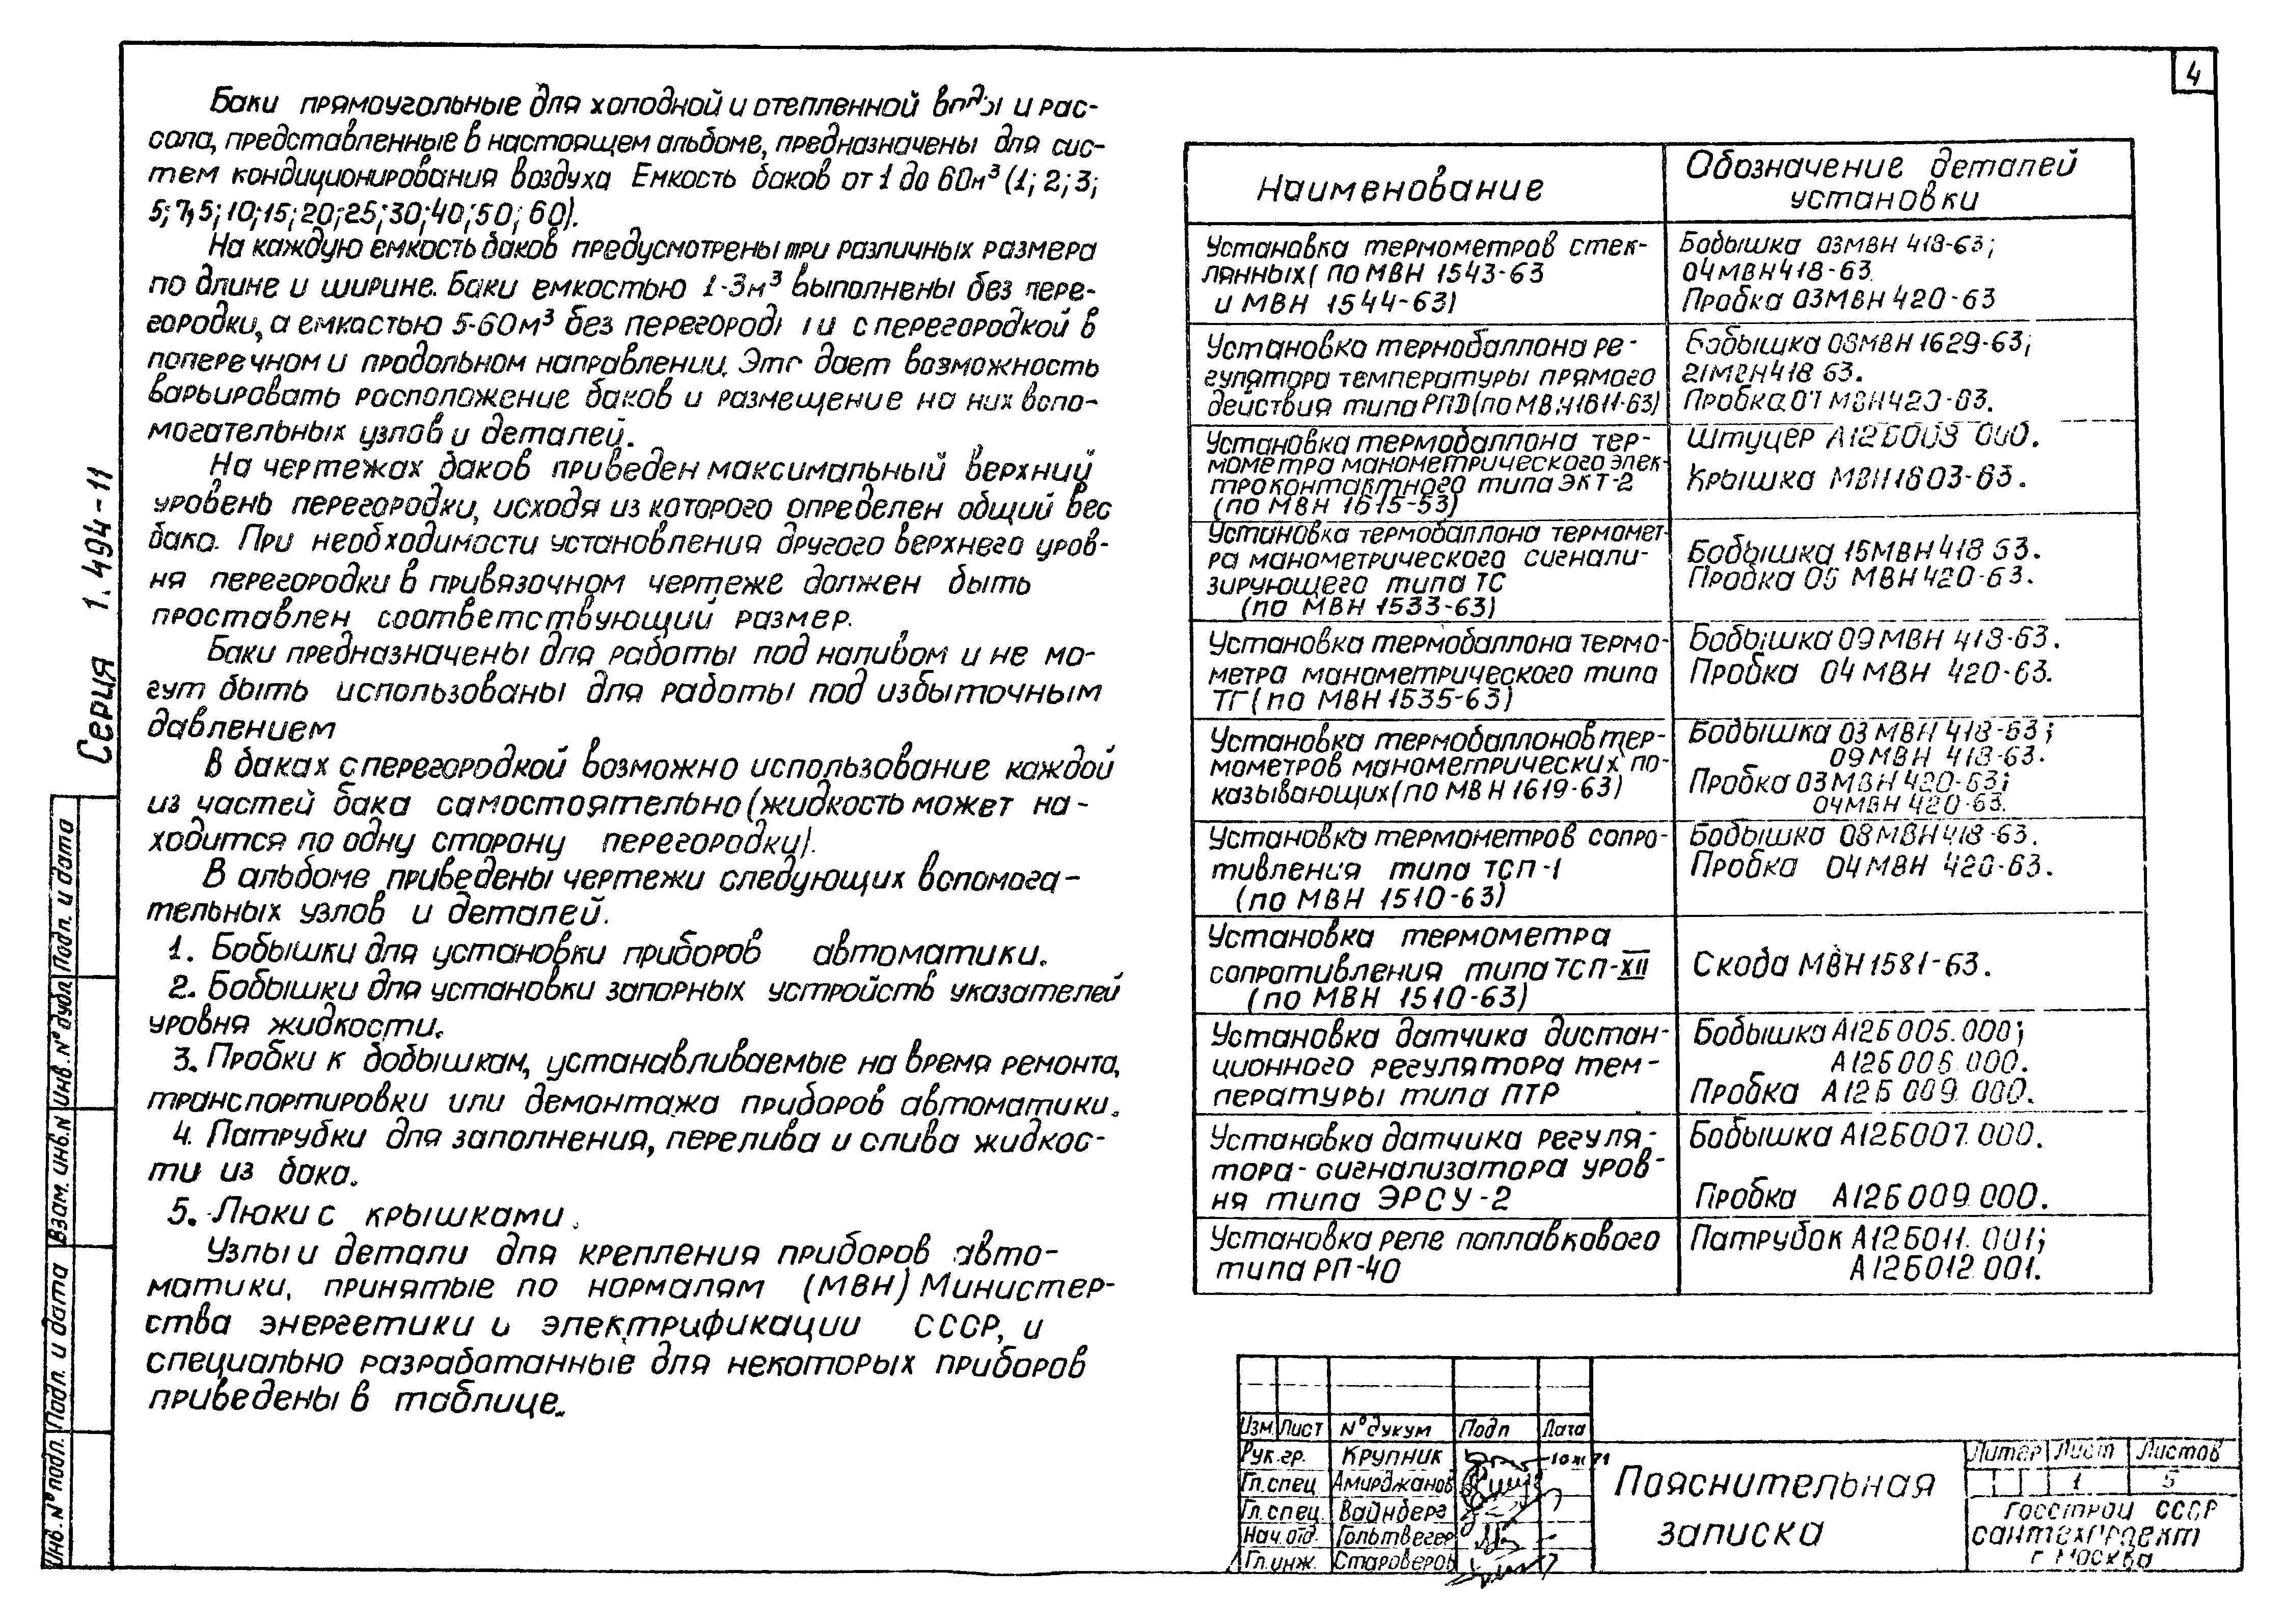 4
Баки прямоугольные для холодной и отепленной воды и рас-
сола, представленные в настоящем альбоме, предназначены для сис-
тем кондиционирования воздуха Емкость баков от 1 до 60м³ (1; 2; 3;
5; 7,5; 10; 15; 20; 25; 30; 40; 50; 60).
На каждую емкость баков предусмотрены три различных размера
по длине и ширине. Баки емкостью 1-3м³ выполнены без пере-
городки, а емкостью 5-60м³ без перегородки и с перегородкой в
поперечном и продольном направлении. Это дает возможность
варьировать расположение баков и размещение на них вспо-
могательных узлов и деталей.
На чертежах баков приведен максимальный верхний
уровень перегородки, исходя из которого определен общий вес
бака. При необходимости установления другого верхнего уров-
ня перегородки в привязочном чертеже должен быть
проставлен соответствующий размер.
Баки предназначены для работы под наливом и не мо-
гут быть использованы для работы под избыточным
давлением
В баках с перегородкой возможно использование каждой
из частей бака самостоятельно (жидкость может на-
ходится по одну сторону перегородки).
В альбоме приведены чертежи следующих вспомога-
тельных узлов и деталей.
1. Бобышки для установки приборов автоматики.
2. Бобышки для установки запорных устройств указателей
уровня жидкости.
3. Пробки к бобышкам, устанавливаемые на время ремонта,
транспортировки или демонтажа приборов автоматики.
4. Патрубки для заполнения, перелива и слива жидкос-
ти из бака.
5. Люки с крышками.
Узлы и детали для крепления приборов авто-
матики, принятые по нормалям (МВН) Министер-
ства энергетики и электрификации СССР, и
специально разработанные для некоторых приборов
приведены в таблице.
Наименование
Обозначение деталей
установки
Установка термометров стек-
лянных (по МВН 1543-63
и МВН 1544-63)
Бобышка 03МВН 418-63;
04МВН418-63.
Пробка 03МВН 420-63
Установка термобаллона ре-
гулятора температуры прямого
действия типа РПД (по МВН1611-63)
Бобышка 08МВН 1629-63;
21МВН418 63.
Пробка 07 МВН420-63.
Установка термобаллона тер-
мометра манометрического элек-
троконтактного типа ЭКТ-2
(по МВН 1615-53)
Штуцер А12Б008 000.
Крышка МВН1603-63.
Установка термобаллона термомет-
ра манометрического сигнали-
зирующего типа ТС
(по МВН 1533-63)
Бобышка 15МВН418 63.
Пробка 05 МВН420-63.
Установка термобаллона термо-
метра манометрического типа
ТГ (по МВН 1535-63)
Бобышка 09МВН 418-63.
Пробка 04 МВН 420-63.
Установка термобаллонов тер-
мометров манометрических по-
казывающих (по МВН 1619-63)
Бобышка 03 МВН 418-63;
09МВН 418-63.
Пробка 03МВН 420-63;
04МВН 420-63.
Установка термометров сопро-
тивления типа ТСП-1
(по МВН 1510-63)
Бобышка 08МВН418-63.
Пробка 04МВН 420-63.
Установка термометра
сопротивления типа ТСП-XII
(по МВН 1510-63)
Скоба МВН1581-63.
Установка датчика дистан-
ционного регулятора тем-
пературы типа ПТР
Бобышка А12Б005.000;
А12Б006 000.
Пробка А12Б009 000.
Установка датчика регуля-
тора-сигнализатора уров-
ня типа ЭРСУ-2
Бобышка А12Б007.000.
Пробка А12Б009 000.
Установка реле поплавкового
типа РП-40
Патрубок А12Б011. 001;
А12Б012 001.
Серия 1.494-11
Инв. № подл. Подп. и дата Взам. инв. № Инв. № дубл. Подп. и дата
Изм. Лист № дукум Подп Дата
Рук. гр. Крупник
Гл. спец Амирджанов
Гл. спец. Вайнберг
Нач. отд. Гольтвегер
Гл. инж. Староверов
Пояснительная
записка
Литер Лист Листов
1 5
Госстрой СССР
Сантехпроект
г Москва